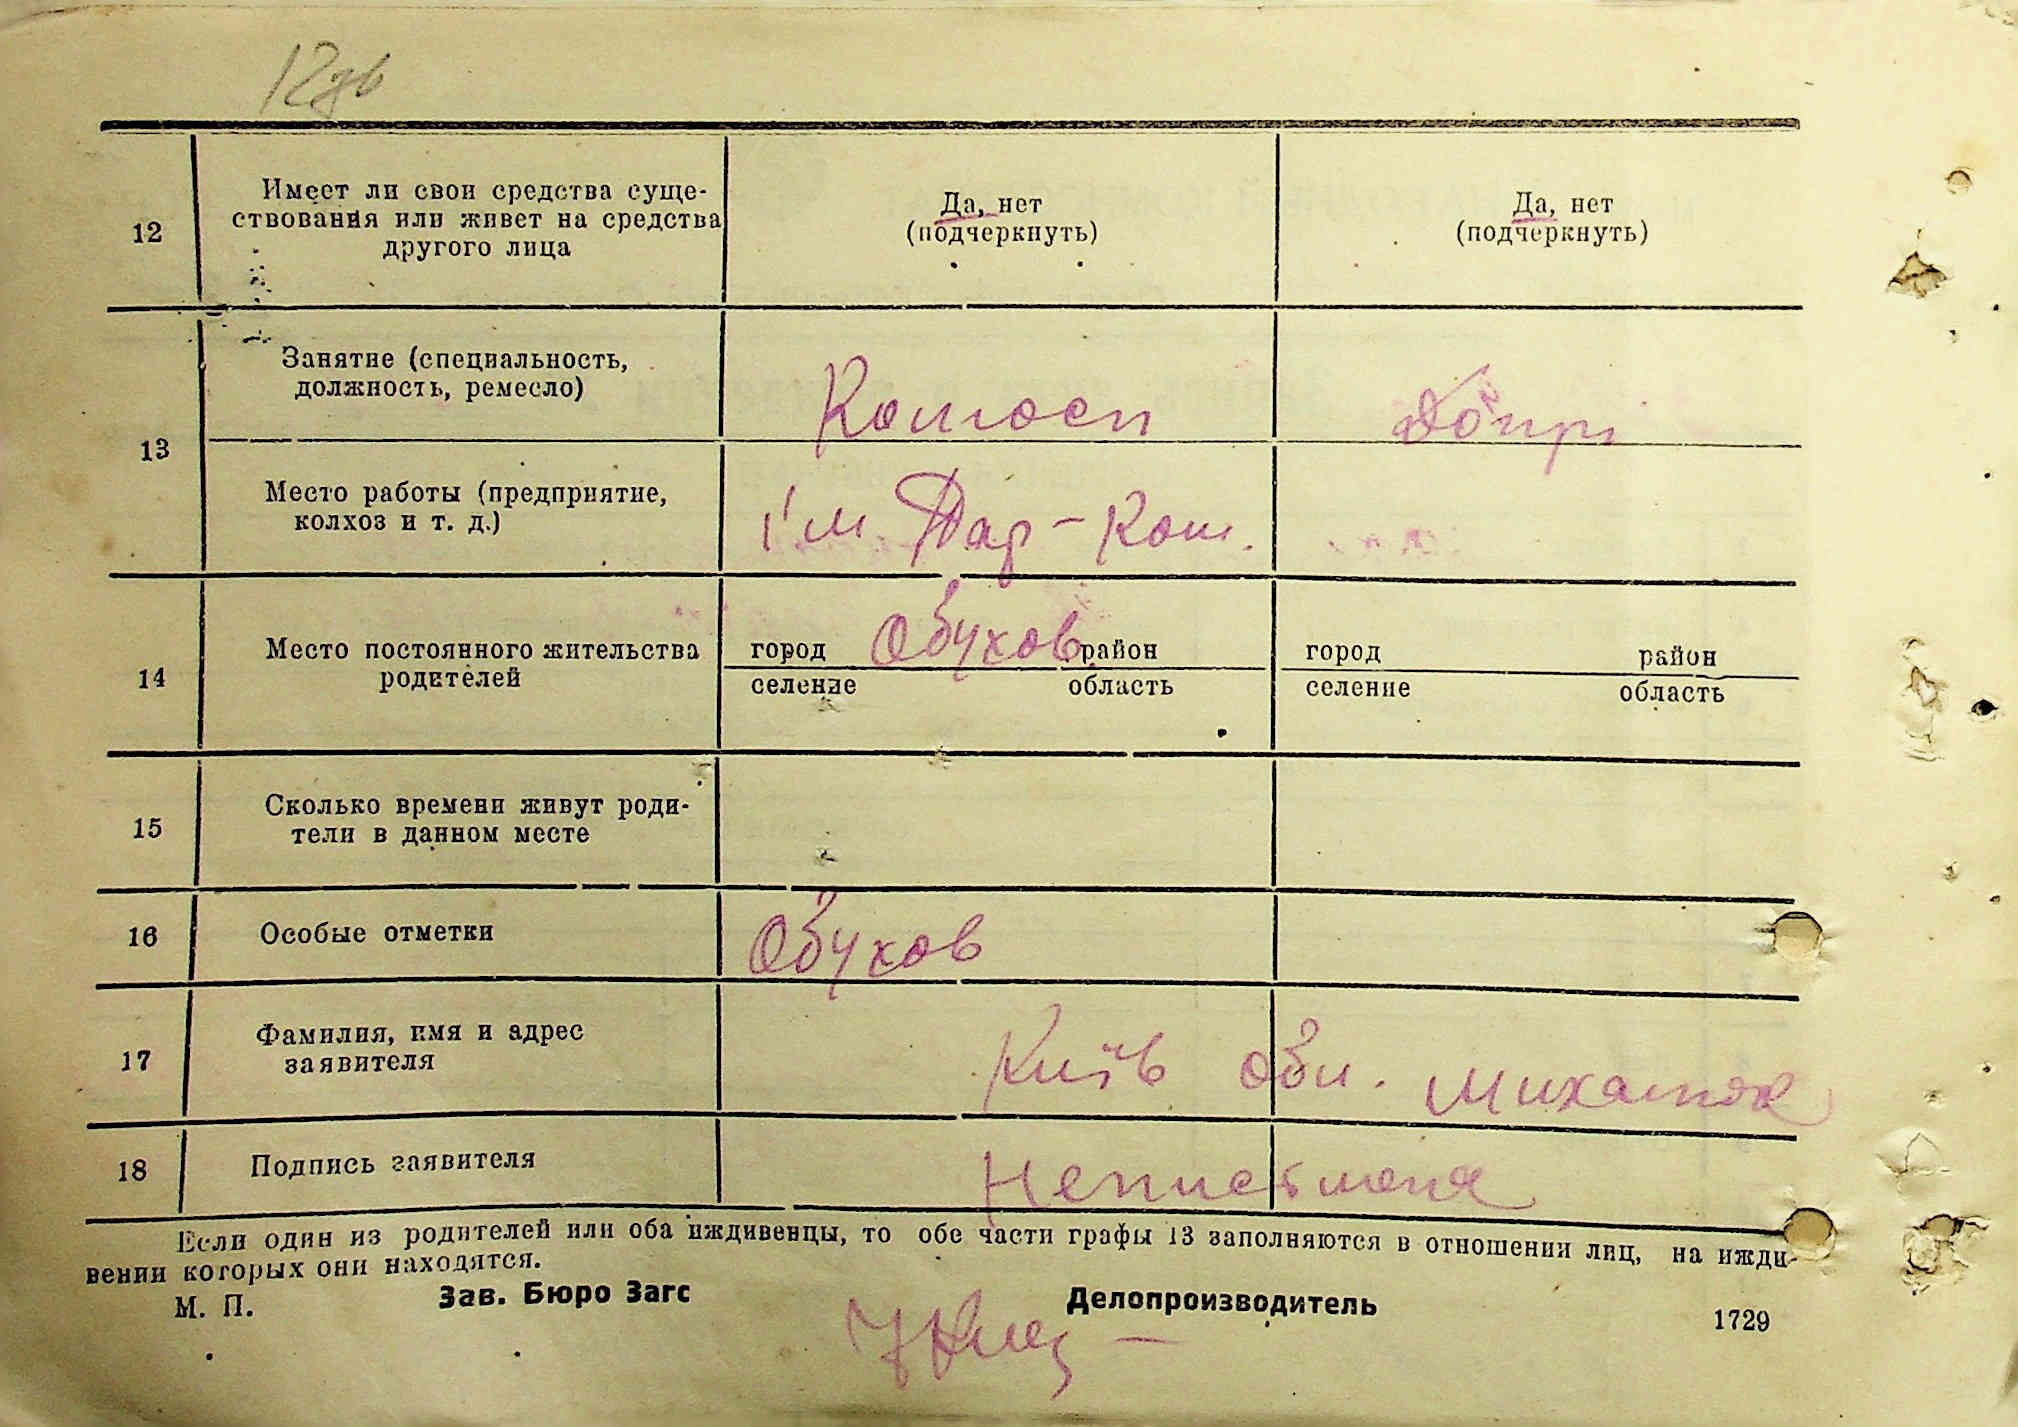 12
Имеет ли свои средства суще-
ствования или живет на средства
другого лица
Да, нет
(подчеркнуть)
Да, нет
(подчеркнуть)
13
Занятие (специальность,
должность, ремесло)
Колгосп
Допрі
Место работы (предприятие,
колхоз и т. д.)
ім.
14
Место постоянного жительства
родителей
город Обухов район
селение область
город район
селение область
15
Сколько времени живут роди-
тели в данном месте
16
Особые отметки
Обухов
17
Фамилия, имя и адрес
заявителя
Київ обл.
18
Подпись заявителя
Неписьмена
Если один из родителей или оба иждивенцы, то обе части графы 13 заполняются в отношении лиц, на ижди-
вении которых они находятся.
М. П. Зав. Бюро Загс Делопроизводитель
1729